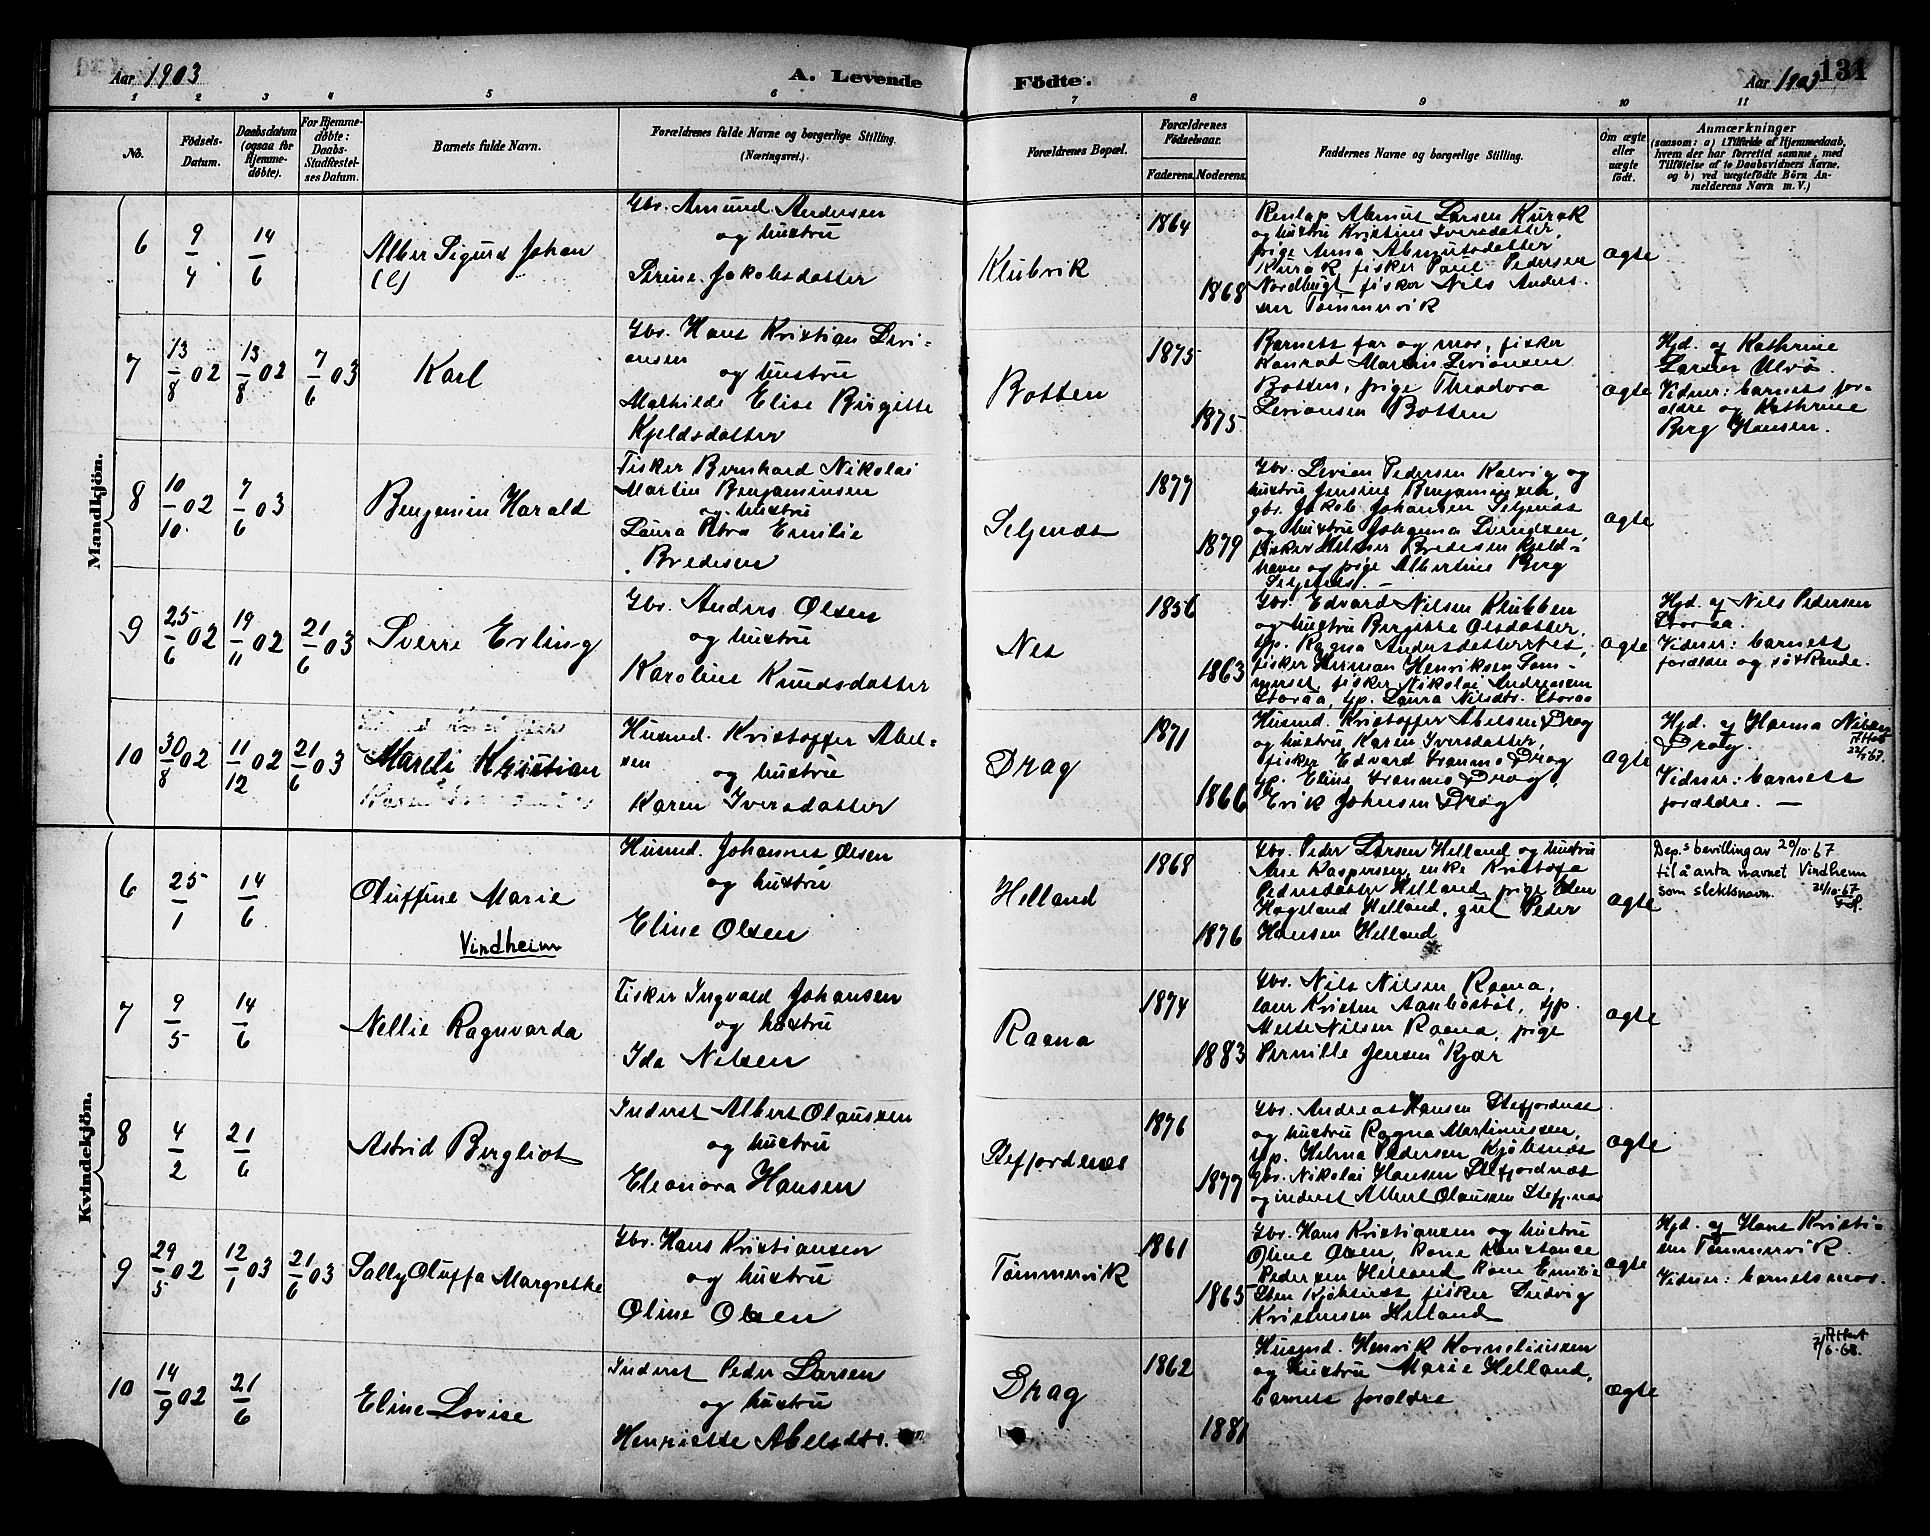 Aar 1903
A. Levende
Fødte.
Aar 1903
131
1 2 3 4 5 6 7 8 9 10 11
No.
Fødsels-
Datum.
Daabsdatum
(ogsaa for
Hjemme-
døbte).
For Hjemme-
døbte:
Daabs-
Stadfæstel-
ses Datum.
Barnets fulde Navn.
Forældrenes fulde Navne og borgerlige Stilling.
(Næringsvei.)
Forældrenes Bopæl.
Forældrenes
Fødselsaar.
Faderens.
Moderens.
Faddernes Navne og borgerlige Stilling.
Om ægte
eller
uægte
født.
Anmærkninger
(saasom: a) i Tilfælde af Hjemmedaab,
hvem der har forrettet samme, med
Tilføielse af to Daabsvidners Navne,
og b) ved uægtefødte Børn An-
melderens Navn m. V.)
Mandkjøn.
6
9/4
14/6
Alber Sigurd Johan
(l)
Gbr. Amund Andersen
og hustru
Serine Jakobsdatter
Klubvik
1864
1868
Renlap Abmut Larsen Kurak
og hustru Kristine Iversdatter,
pige Anna Abmutsdatter
Kurak, fisker Paul Pedersen
Nordbugt fisker Nils Anders-
sen Tømmervik
ægte
7
13/8 02
13/8 02
7/6 03
Karl
Gbr. Hans Kristian Levi-
ansen
og hustru
Mathilde Elise Birgitte
Kjeldsdatter
Botten
1875
1875
Barnets far og mor, fisker
Konrad Martin Leviansen
Botten, pige Theodora
Leviansen Botten
ægte
Hjd. af Kathrine
Larsen Ulvø.
Vidner: barnets for-
ældre og Kathrine
Berg Hansen.
8
10/10 02
7/6 03
Benjamin Harald
Fisker Bernhard Nikolai
Martin Benjaminsen
og hustru
Laura Petra Emilie
Bredesen
Seljenæs
1877
1879
Gbr. Levien Pedersen Kalvig og
hustru Jensine Benjaminsen,
gbr. Jakob Johansen Seljenæs
og hustru Johanna
fisker Hilmer Bredesen Kjeld-
havn og pige Albertine Berg
Seljenæs. —
ægte
9
25/6 02
19/11 02
21/6 03
Sverre Erling
Gbr. Anders Olsen
og hustru
Karoline Knudsdatter
Nes
1856
1863
Gbr. Edvard Nilsen Klubben
og hustru Birgitte Olsdatter,
tjp. Ragna Andersdatter Nes,
fisker Herman Henriksen Som-
merset, fisker Nikolai Andreasen
Storaa, tjp. Laura Nilsdtr. Storaa
ægte
Hjd. af Nils Pedersen
Storaa.
Vidner: barnets
forældre og søskende.
10
30/8 02
11/12 02
21/6 03
Mareli Kristian
Husmd. Kristoffer Abel-
sen
og hustru
Karen Iversdatter
Drag
1871
1866
Husmd. Kristoffer Abelsen Drag
og hustru Karen Iversdatter,
fisker Edvard Granmo Drag
tjp. Eline Granmo Drag,
Erik Johnsen Drag
ægte
Hjd. af Hanna Nilsen
Drag.
Attest
22/5 67.
Vidner: barnets
forældre. —
Kvindekjøn.
6
25/1
14/6
Oluffine Marie
Vindheim
Husmd. Johannes Olsen
og hustru
Eline Olsen
Helland
1868
1876
Gbr. Peder Larsen Helland og hustru
Ane Kaspersen, enke Kristofa
Pedersdatter Helland, pige Ellen
Hogstand Helland, gut Peder
Hansen Helland
ægte
Dep.s bevilling av 20/10-67
til å anta navnet Vindheim
som slektsnavn.
7
9/5
14/6
Nellie Ragnvarda
Fisker Ingvald Johansen
og hustru
Ida Nilsen
Raana
1874
1883
Gbr. Nils Nilsen Raana,
lærer Kristen Aanbøstøl, tjp.
Mette Nilsen Raana, pige
Pernille Jensen Kjær
ægte
8
4/2
21/6
Astrid Bergliot
Inderst Albert Olaussen
og hustru
Eleonora Hansen
Stefjordnæs
1876
1877
Gbr. Andreas Hansen Stefjordnæs
og hustru Ragna Martinussen,
tjp. Helma Pedersen Kjøbsnæs
gbr. Nikolai Hansen Stefjordnæs
og inderst Albert Olaussen Stefj.næs
ægte
9
29/5 02
12/1 03
21/6 03
Sally Oluffa Margrethe
Gbr. Hans Kristiansen
og hustru
Oline Olsen
Tømmervik
1861
1865
Gbr. Hans Kristiansen og hustru
Oline Olsen, kone Konstance
Pedersen Helland kone Emilie
Sten Kjøbsnæs fisker Ludvig
Kristensen Helland
ægte
Hjd. af Hans Kristi-
sen Tømmervik.
Vidner: barnets mor.
10
14/9 02
21/6
Eline Lovise
Inderst Peder Larsen
og hustru
Henriette Abelsdtr.
Drag
1862
1881
Husmd. Henrik Korneliussen
og hustru Marie Helland,
barnets forældre
ægte
Attest
7/6-68.